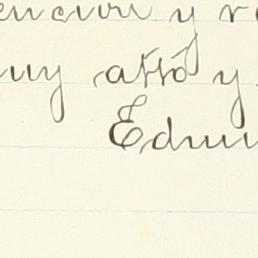 encion y r
uy attó y
Edmu